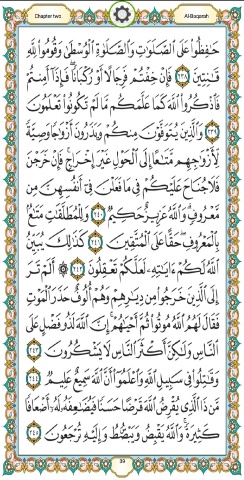 Chapter two
Al-Baqarah
حَـٰفِظُوا۟ عَلَى ٱلصَّلَوَٰتِ وَٱلصَّلَوٰةِ ٱلْوُسْطَىٰ وَقُومُوا۟ لِلَّهِ
قَـٰنِتِينَ ٢٣٨ فَإِنْ خِفْتُمْ فَرِجَالًا أَوْ رُكْبَانًا ۖ فَإِذَآ أَمِنتُمْ
فَٱذْكُرُوا۟ ٱللَّهَ كَمَا عَلَّمَكُم مَّا لَمْ تَكُونُوا۟ تَعْلَمُونَ
٢٣٩ وَٱلَّذِينَ يُتَوَفَّوْنَ مِنكُمْ وَيَذَرُونَ أَزْوَٰجًا وَصِيَّةً
لِّأَزْوَٰجِهِم مَّتَـٰعًا إِلَى ٱلْحَوْلِ غَيْرَ إِخْرَاجٍ ۚ فَإِنْ خَرَجْنَ
فَلَا جُنَاحَ عَلَيْكُمْ فِى مَا فَعَلْنَ فِىٓ أَنفُسِهِنَّ مِن
مَّعْرُوفٍ ۗ وَٱللَّهُ عَزِيزٌ حَكِيمٌ ٢٤٠ وَلِلْمُطَلَّقَـٰتِ مَتَـٰعٌۢ
بِٱلْمَعْرُوفِ ۖ حَقًّا عَلَى ٱلْمُتَّقِينَ ٢٤١ كَذَٰلِكَ يُبَيِّنُ
ٱللَّهُ لَكُمْ ءَايَـٰتِهِۦ لَعَلَّكُمْ تَعْقِلُونَ ٢٤٢ ۞ أَلَمْ تَرَ
إِلَى ٱلَّذِينَ خَرَجُوا۟ مِن دِيَـٰرِهِمْ وَهُمْ أُلُوفٌ حَذَرَ ٱلْمَوْتِ
فَقَالَ لَهُمُ ٱللَّهُ مُوتُوا۟ ثُمَّ أَحْيَـٰهُمْ ۚ إِنَّ ٱللَّهَ لَذُو فَضْلٍ عَلَى
ٱلنَّاسِ وَلَـٰكِنَّ أَكْثَرَ ٱلنَّاسِ لَا يَشْكُرُونَ ٢٤٣
وَقَـٰتِلُوا۟ فِى سَبِيلِ ٱللَّهِ وَٱعْلَمُوٓا۟ أَنَّ ٱللَّهَ سَمِيعٌ عَلِيمٌ
٢٤٤ مَّن ذَا ٱلَّذِى يُقْرِضُ ٱللَّهَ قَرْضًا حَسَنًا فَيُضَـٰعِفَهُۥ لَهُۥٓ أَضْعَافًا
كَثِيرَةً ۚ وَٱللَّهُ يَقْبِضُ وَيَبْصُۜطُ وَإِلَيْهِ تُرْجَعُونَ ٢٤٥
39